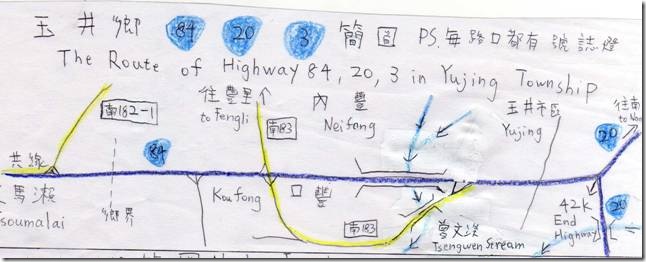 玉井鄉 84 20 3 簡圖 PS.每路口都有號誌燈
The Route of Highway 84, 20, 3 in Yujing Township
南182-1
往豐里
to Fengli
南183
內豐
Neifong
玉井市區
Yujing
往南
20
共線
84
馬瀨
Tsoumalai
鄉界
Koufong
口豐
南183
曾文溪
Tsengwen Stream
42K
End
Highway
20